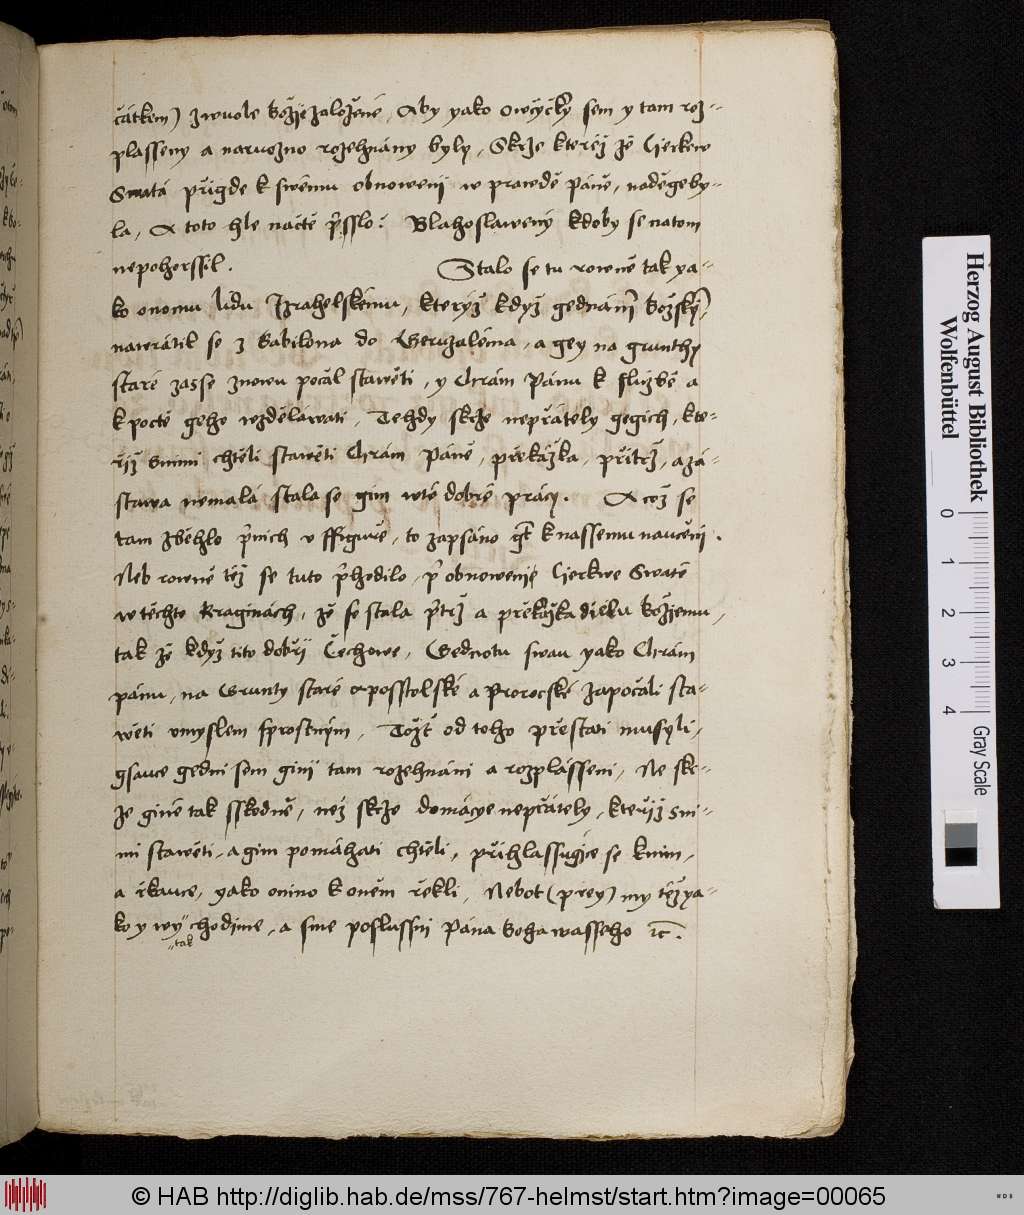 čátkem) zwuole Božije založené, Aby yako Owčyčky sem y tam roz-
plasseny a naruozno rozehnány byly, Skrze kteréž že Cierkew
Swatá přigde k swému obnowenij w prawdě Páně, naděgeby-
la, A toto hle nactě přsslo: Blahoslawený kdoby se natom
nepohorssil. Stalo se tu rowně tak ya-
ko onomu lidu Izrahelskému, kterýž když gednáním Božským,
nawrátil se z Babilona do Geruzaléma, a gey na grunthy
staré zasse znowu počal stawěti, y Chrám Pánu k službě a
k poctě geho wzděláwati, Tehdy skrze nepřátely gegich, kte-
řijž snimi chtěli stawěti Chrám Páně, překážka, přitrž, a zá-
stawa nemalá stala se gim wté dobré práci. A což se
tam zběhlo přnich v ffiguře, to zapsáno gt k nassemu naučenij.
Neb rowně též se tuto přhodilo, př obnowenije Cierkwe Swaté
w těchto Kraginách, že se stala přtrž a překážka dielu Božijemu,
tak že když tito dobřij Čechowe, Gednotu swau yako Chrám
pánu, na Grunty staré aposstolské a Prorocské započali sta-
wěti vmyslem sprostným, Tožť od toho přestati musyli,
gsauce gedni sem ginij tam rozehnáni a rozplásseni, Ne skr-
ze giné tak sskodně, než skrze domácye nepřátely, kteřijž sni-
mi stawěti, a gim pomáhati chtěli, přihlassugijce se knim,
a řkauce, yako onino k oněm řekli, Nebot (prey) my též ya-
ko y wy chodime, a sme poslussni Pána Boha wasseho ꝛc.
tak
Herzog August Bibliothek
Wolfenbüttel
0 1 2 3 4 Gray Scale
© HAB http://diglib.hab.de/mss/767-helmst/start.htm?image=00065